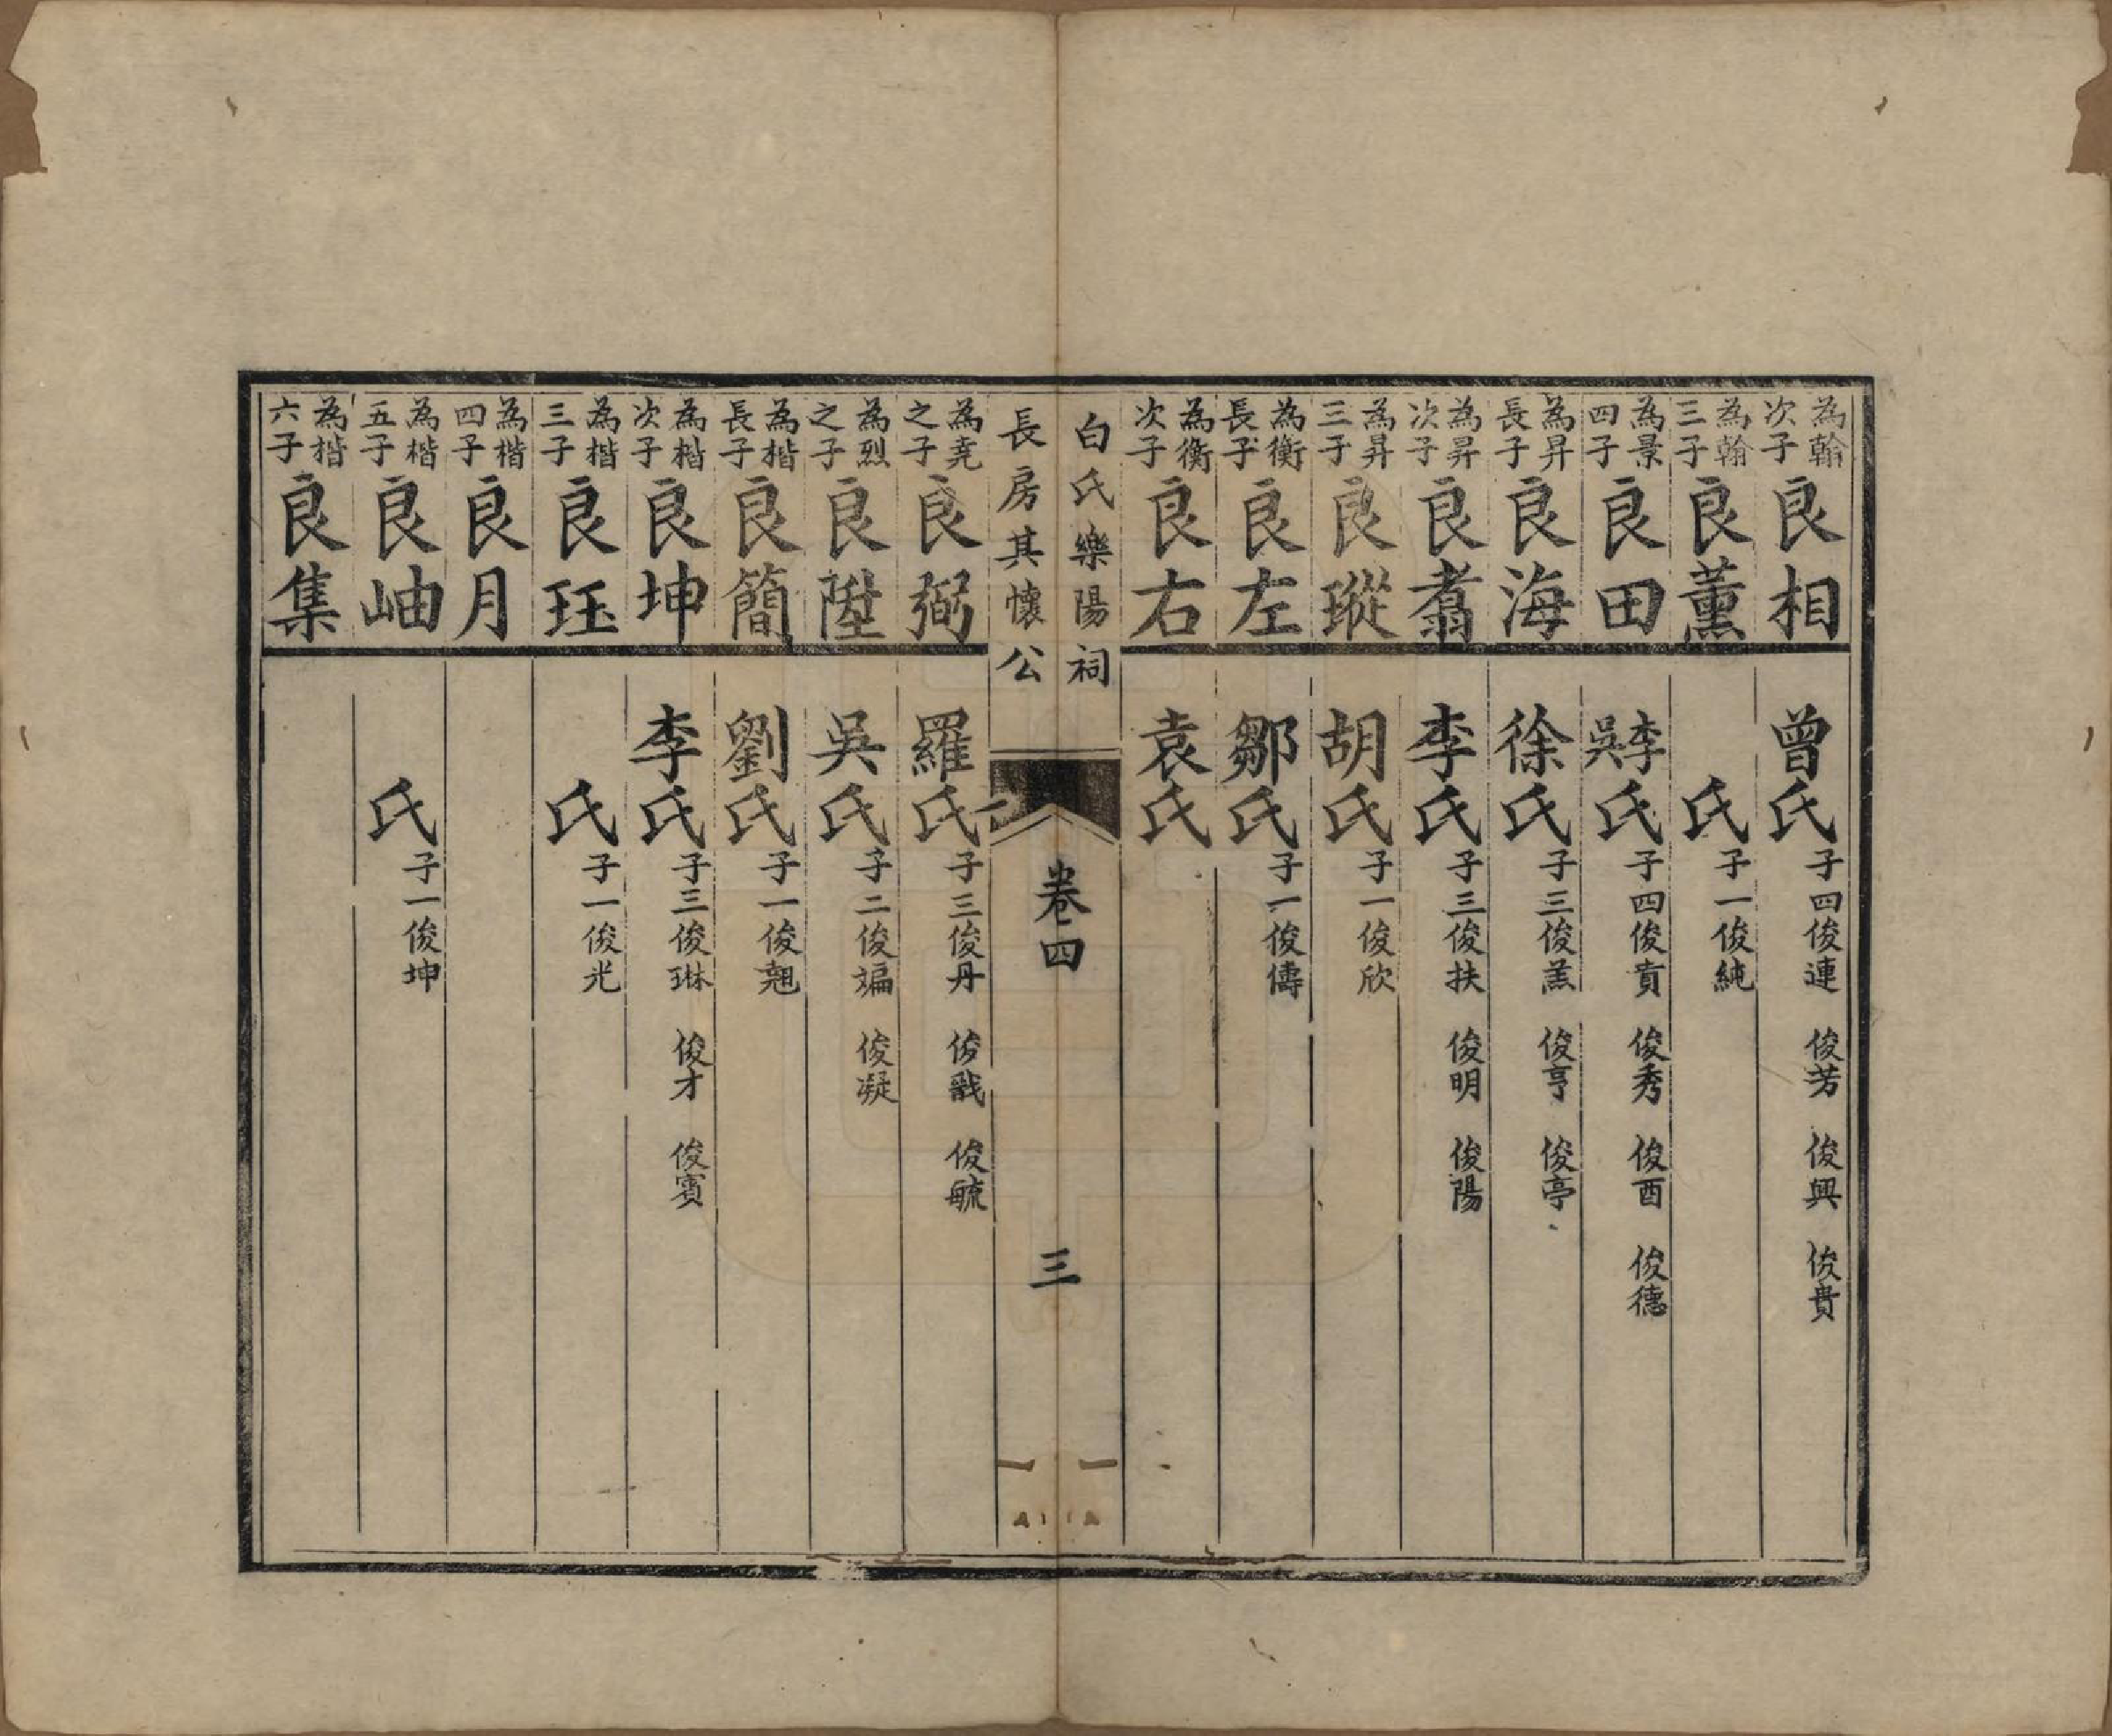 為翰次子 良相 曾氏 子四俊連 俊芳 俊興 俊貴
為翰三子 良薰 氏 子一俊純
為景四子 良田 李吳氏 子四俊賁 俊秀 俊酉 俊德
為昇長子 良海 徐氏 子三俊羔 俊亨 俊亭
為昇次子 良翥 李氏 子三俊扶 俊明 俊陽
為昇三子 良瑽 胡氏 子一俊欣
為衡長子 良左 鄒氏 子一俊儔
為衡次子 良右 袁氏
白氏樂陽祠
長房其懷公
卷四
三
為堯之子 良弼 羅氏 子三俊丹 俊戩 俊毓
為烈之子 良陞 吳氏 子二俊斒 俊凝
為楷長子 良簡 劉氏 子一俊翹
為楷次子 良坤 李氏 子三俊琳 俊才 俊賓
為楷三子 良珏 氏 子一俊光
為楷四子 良月
為楷五子 良岫 氏 子一俊坤
為楷六子 良集